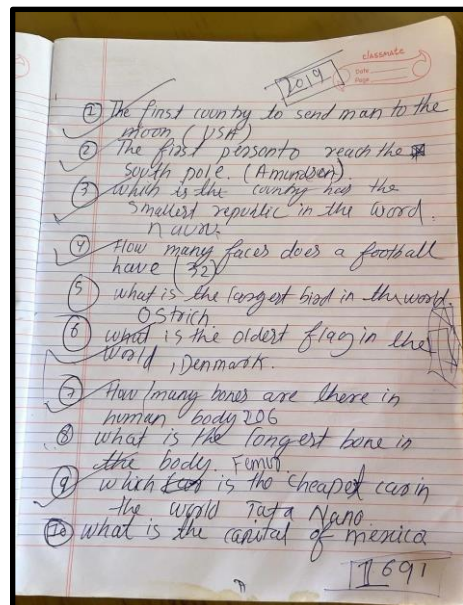 classmate
2019
Date
Page
① The first county to send man to the
moon (USA)
② The first personto reach the
south pole. (Amundsen).
③ which is the country has the
smallest republic in the word.
naurn.
④ How many faces does a football
have (32)
⑤ what is the largest bird in the world.
Ostrich
⑥ what is the oldest flag in the
world , Denmark.
⑦ How many bones are there in
human body 206
⑧ what is the longest bone in
the body. Femur
⑨ which is the cheapest car in
the world Tata Nano
⑩ what is the capital of mexica
1691